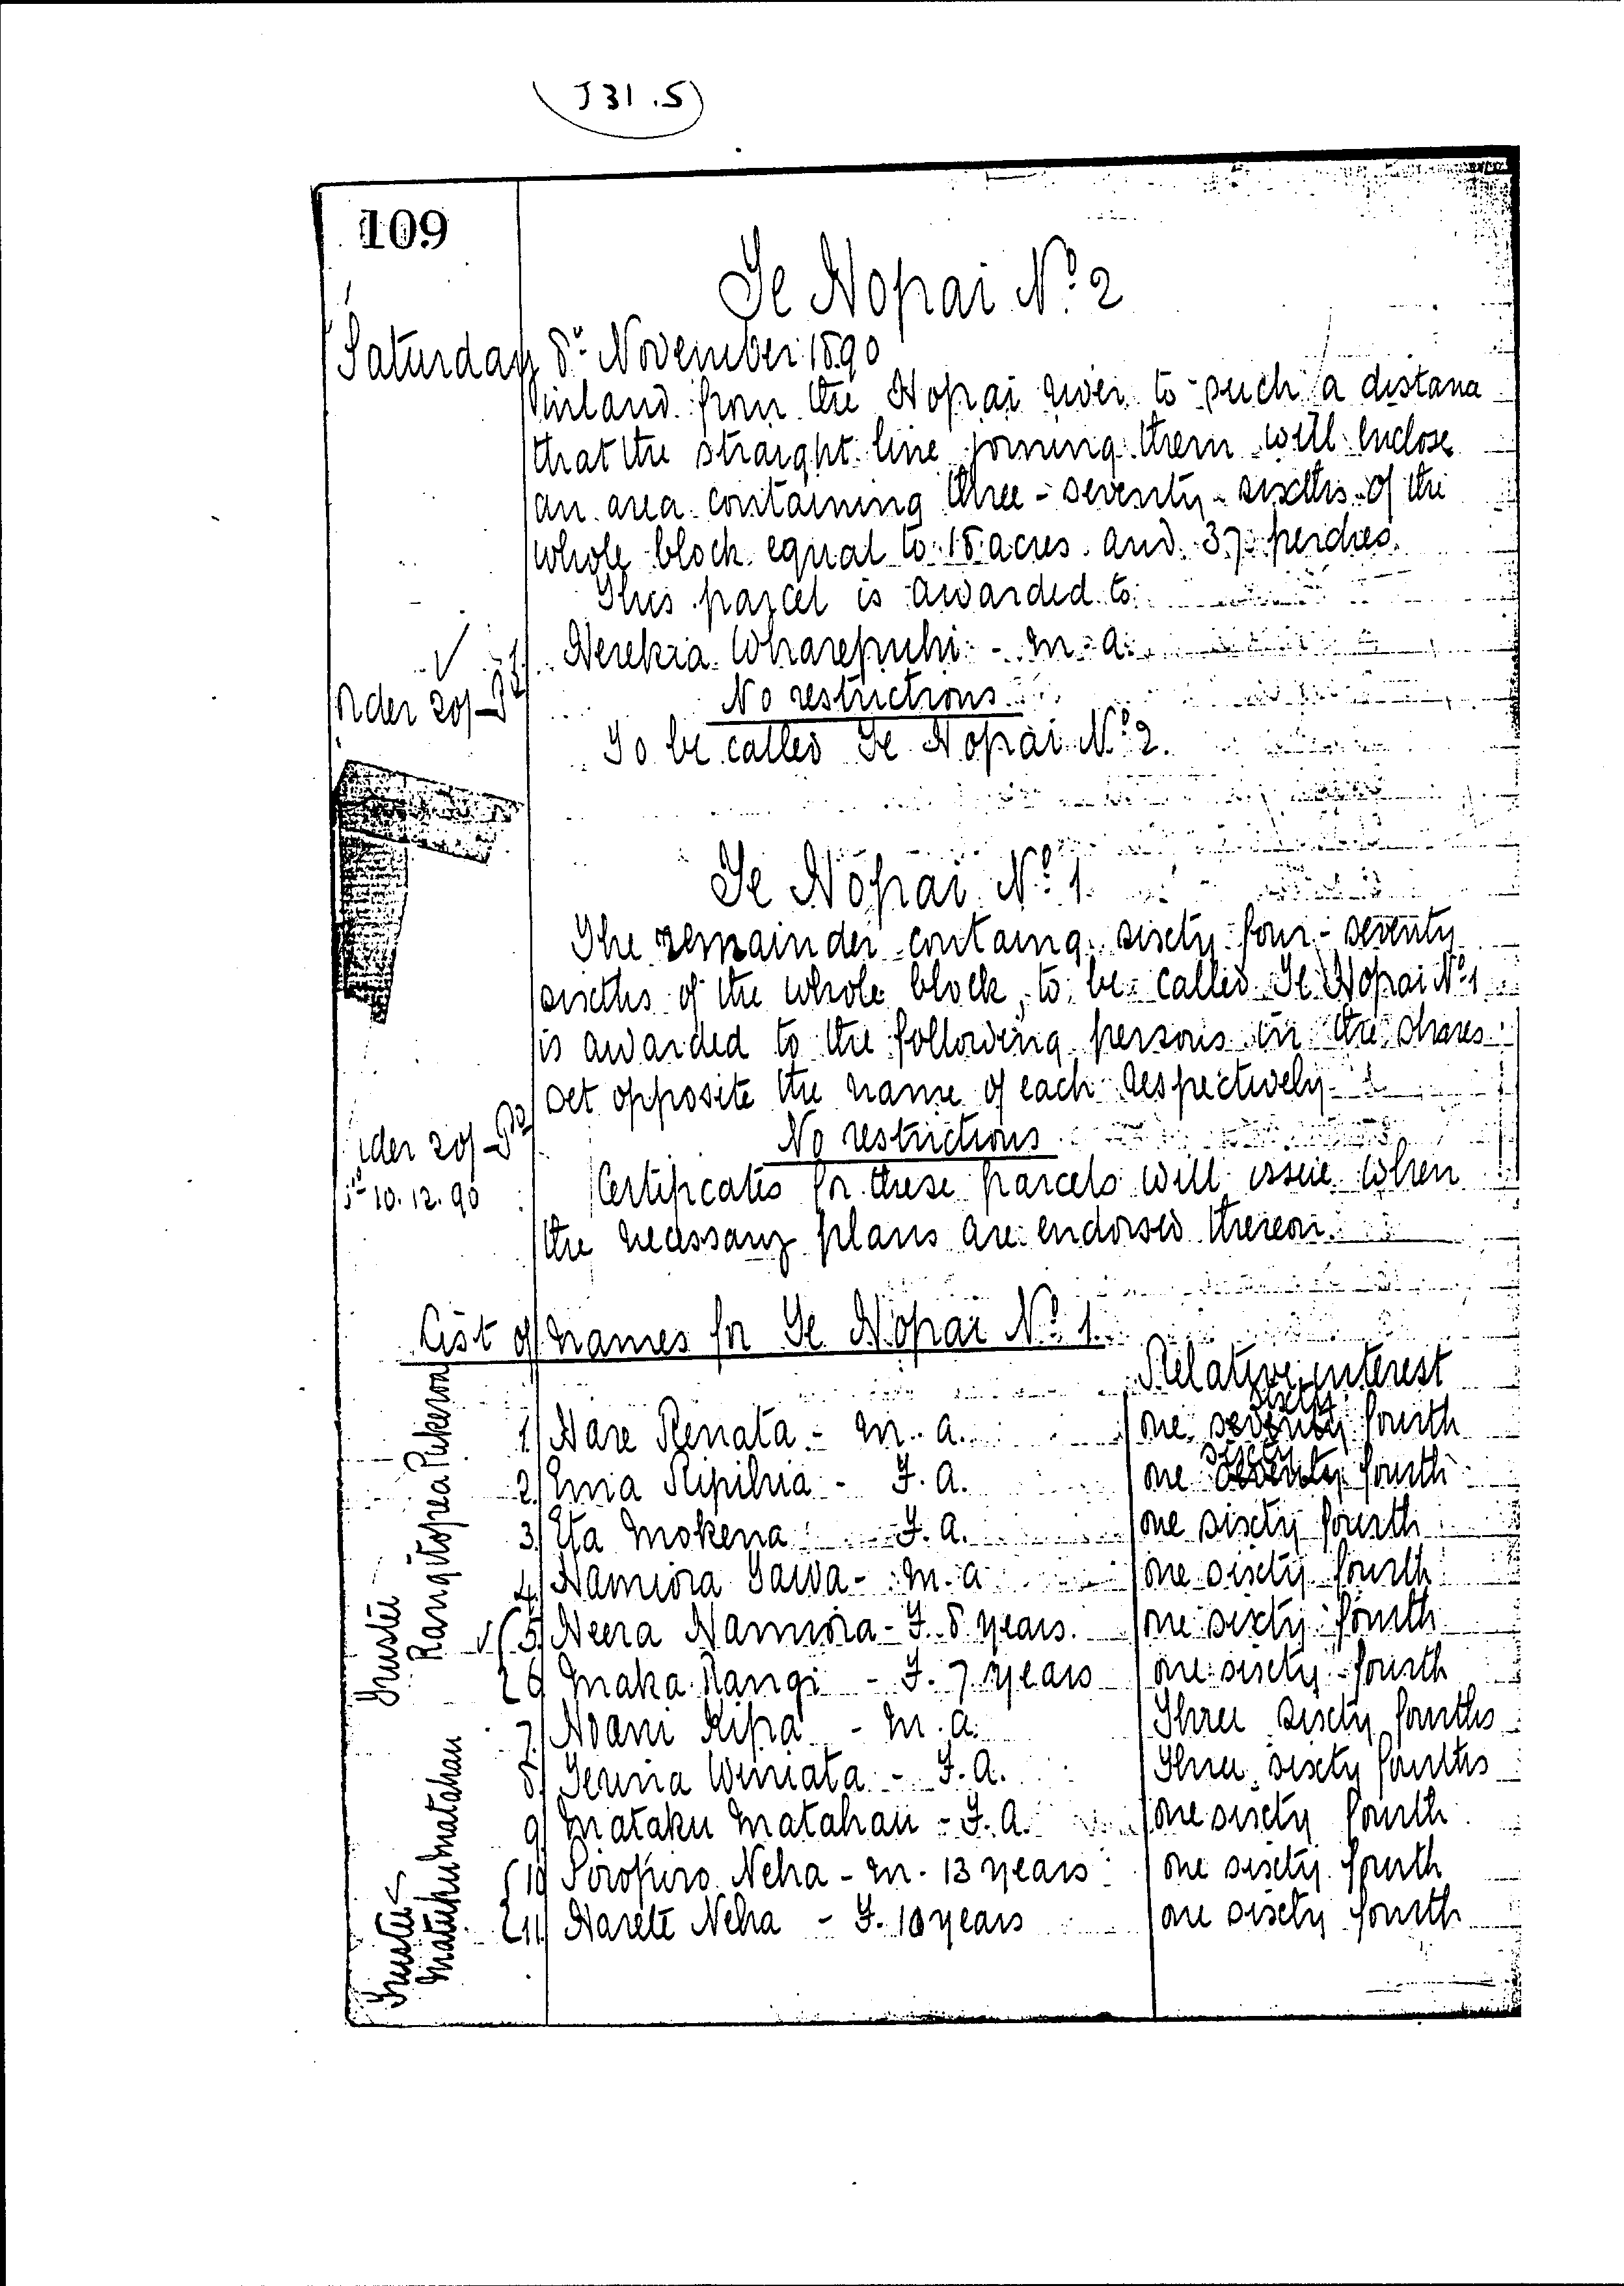 J 31 . 5
109
Te Hopai No. 2
Saturday 8th November 1890
inland from the Hopai river to such a distance
that the straight line joining them will enclose
an area containing three-seventy-sixths of the
whole block equal to 18 acres and 37 perches.
This parcel is awarded to
1. Herekia Wharepuhi - M. A.
Order 20/-
No restrictions
To be called Te Hopai No. 2.
Te Hopai No. 1
The remainder containg sixty four-seventy
sixths of the whole block, to be called Te Hopai No. 1
is awarded to the following persons in the shares
set opposite the name of each respectively
der 20/-
No restrictions
10.12.90
Certificates for these parcels will issue when
the necessary plans are endorsed thereon.
List of names for Te Hopai No. 1.
Relative interest
1. Hare Renata - M. A. one seventy sixty fourth
2. Ema Ripihia - F. A. one seventy sixty fourth
3. Eta Mokena F. A. one sixty fourth
4. Hamiora Tawa - M. A one sixty fourth
5. Neera Hamiora - F. 8 years. one sixty fourth
6 Maka Rangi - F. 7 years one sixty fourth
Trustee Rangitopea Pukeroa
7. Hoani Kipa - M. A. Three sixty fourths
8. Teuria Winiata - F. A. Three sixty fourths
9 Mataku Matahau - F. A. one sixty fourth
10 Piropiro Neha - M. 13 years one sixty fourth
11. Harete Neha - F. 10 years one sixty fourth
Trustee Matuku Matahau